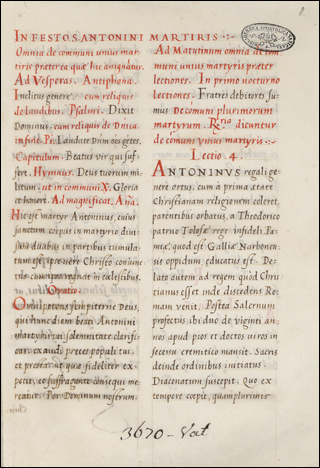 IN FESTO S. ANTONINI MARTIRIS
Omnia de communi unius mar-
tiris præter ea quæ hic assignatur.
Ad Vesperas. Antiphona.
Inclitus genere. cum reliquis
de laudibus. Psalmi. Dixit
Dominus, cum reliquis de Dnica
in fine. Ps. Laudate Dnm oēs gētes.
Capitulum. Beatus vir qui suf-
fert. Hymnus. Deus tuorum mi-
litum. ut in communi. Gloria
et honore. Ad magnificat. Aña.
Hic est martyr Antoninus, cuius
sanctum corpus in martyrio divi-
sum duabus in partibus tumula-
tum esse, spe vero Christo coniunc-
tus, cum eo regnat in cælestibus.
Oratio.
Omnipotens sempiterne Deus,
qui hunc diem beati Antonini
martyris tui solemnitate clarifi-
cas: exaudi preces populi tui,
et præsta: ut quæ fideliter ex-
petit, eo suffragante consequi me-
reatur. Per Dominum nostrum.
Ad Matutinum omnia ut com-
muni unius martyris præter
lectiones. In primo nocturno
lectiones. Fratres debitores su-
mus De comuni plurimorum
martyrum. Rꝛia dicuntur
de comuni unius martyris.
Lectio. 4
ANTONINVS regali ge-
nere ortus, cum à prima ætate
Christianam religionem coleret,
parentibus orbatus, a Theodorico
patruo Tolosæ rege infideli Pa-
miæ, quod est Galliæ Narbonen-
sis oppidum educatus est. De-
lato autem ad regem quòd Chris-
tianus esset inde discedens Ro-
mam venit. Postea Salernum
profectus ibi duo de viginti an-
nos apud pios et doctos viros in
secessu eremitico mansit. Sacris
deinde ordinibus initiatus
Diaconatum suscepit. Quo ex
tempore coepit, quamplurimis
3670 - Vat